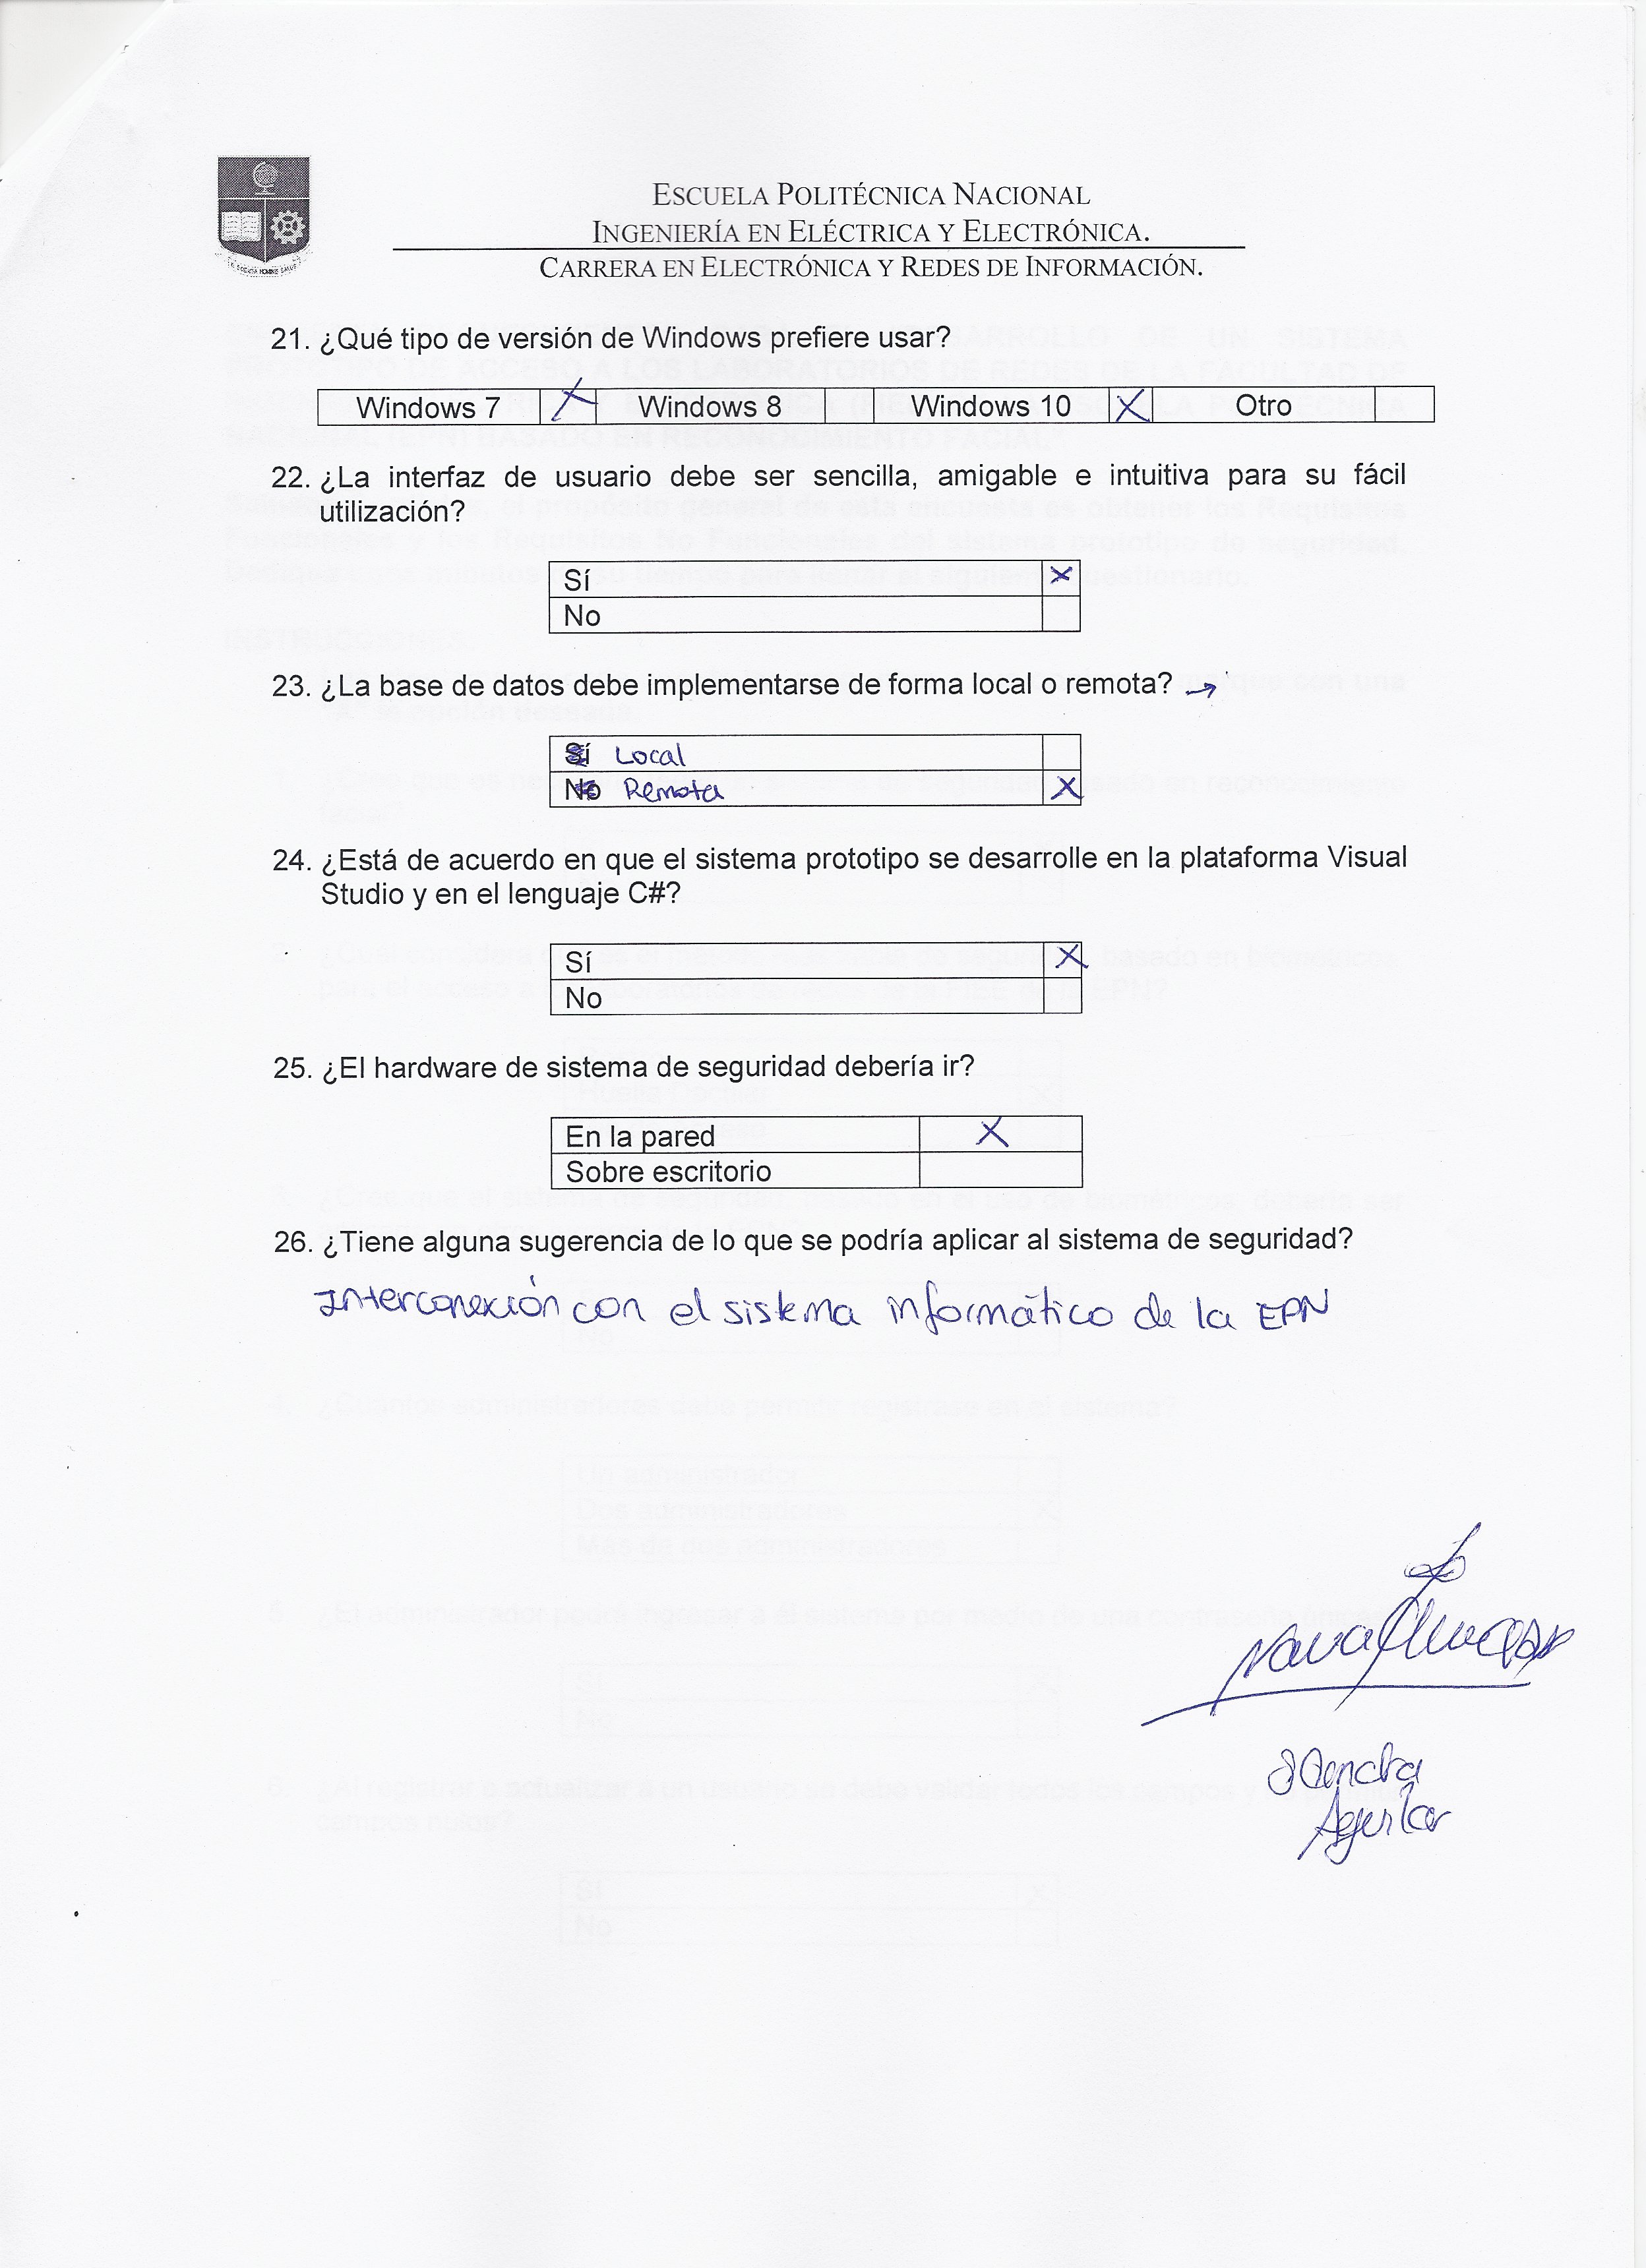 ESCUELA POLITÉCNICA NACIONAL
INGENIERÍA EN ELÉCTRICA Y ELECTRÓNICA.
CARRERA EN ELECTRÓNICA Y REDES DE INFORMACIÓN.
21. ¿Qué tipo de versión de Windows prefiere usar?
Windows 7 X Windows 8 Windows 10 X Otro
22. ¿La interfaz de usuario debe ser sencilla, amigable e intuitiva para su fácil
utilización?
Sí X
No
23. ¿La base de datos debe implementarse de forma local o remota? →
Sí Local
No Remota X
24. ¿Está de acuerdo en que el sistema prototipo se desarrolle en la plataforma Visual
Studio y en el lenguaje C#?
Sí X
No
25. ¿El hardware de sistema de seguridad debería ir?
En la pared X
Sobre escritorio
26. ¿Tiene alguna sugerencia de lo que se podría aplicar al sistema de seguridad?
Interconexión con el sistema informático de la EPN